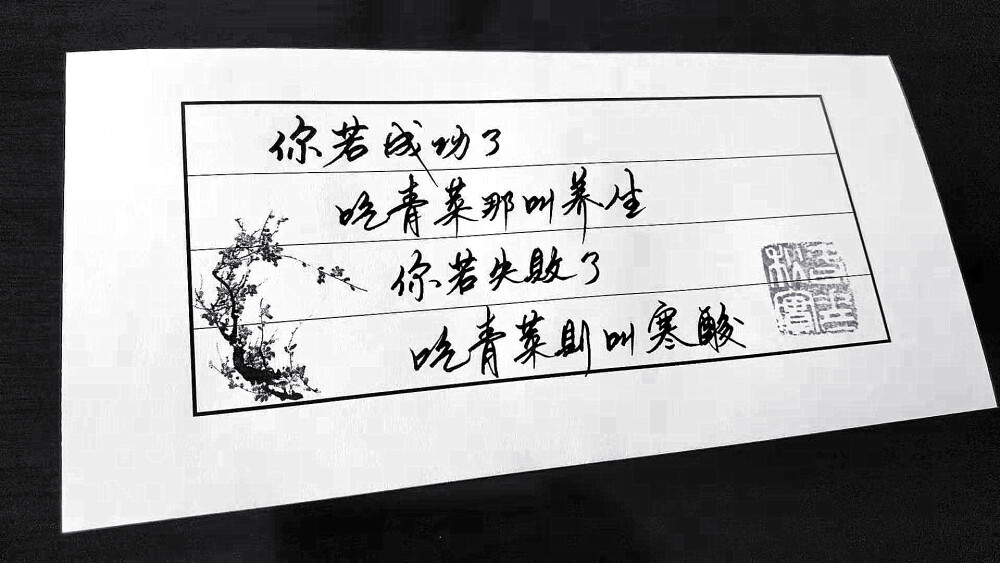 你若成功了
吃青菜那叫养生
你若失败了
吃青菜则叫寒酸